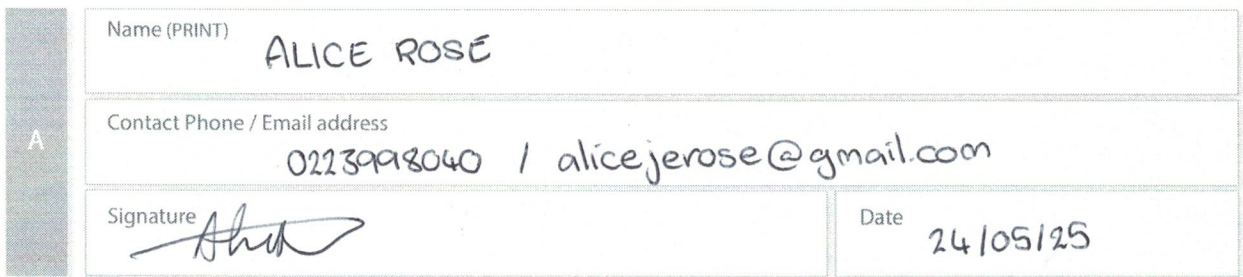 Name (PRINT)
ALICE ROSE
A
Contact Phone / Email address
0223998040 / alicejerose@gmail.com
Signature
Date
24/05/25